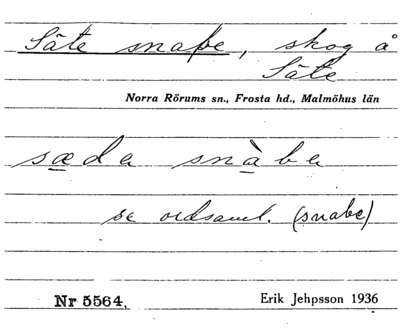 Säte snape, skog å
Säte
Norra Rörums sn., Frosta hd., Malmöhus län
sæda snàba
se ordsaml. (snabe)
Nr 5564. Erik Jehpsson 1936